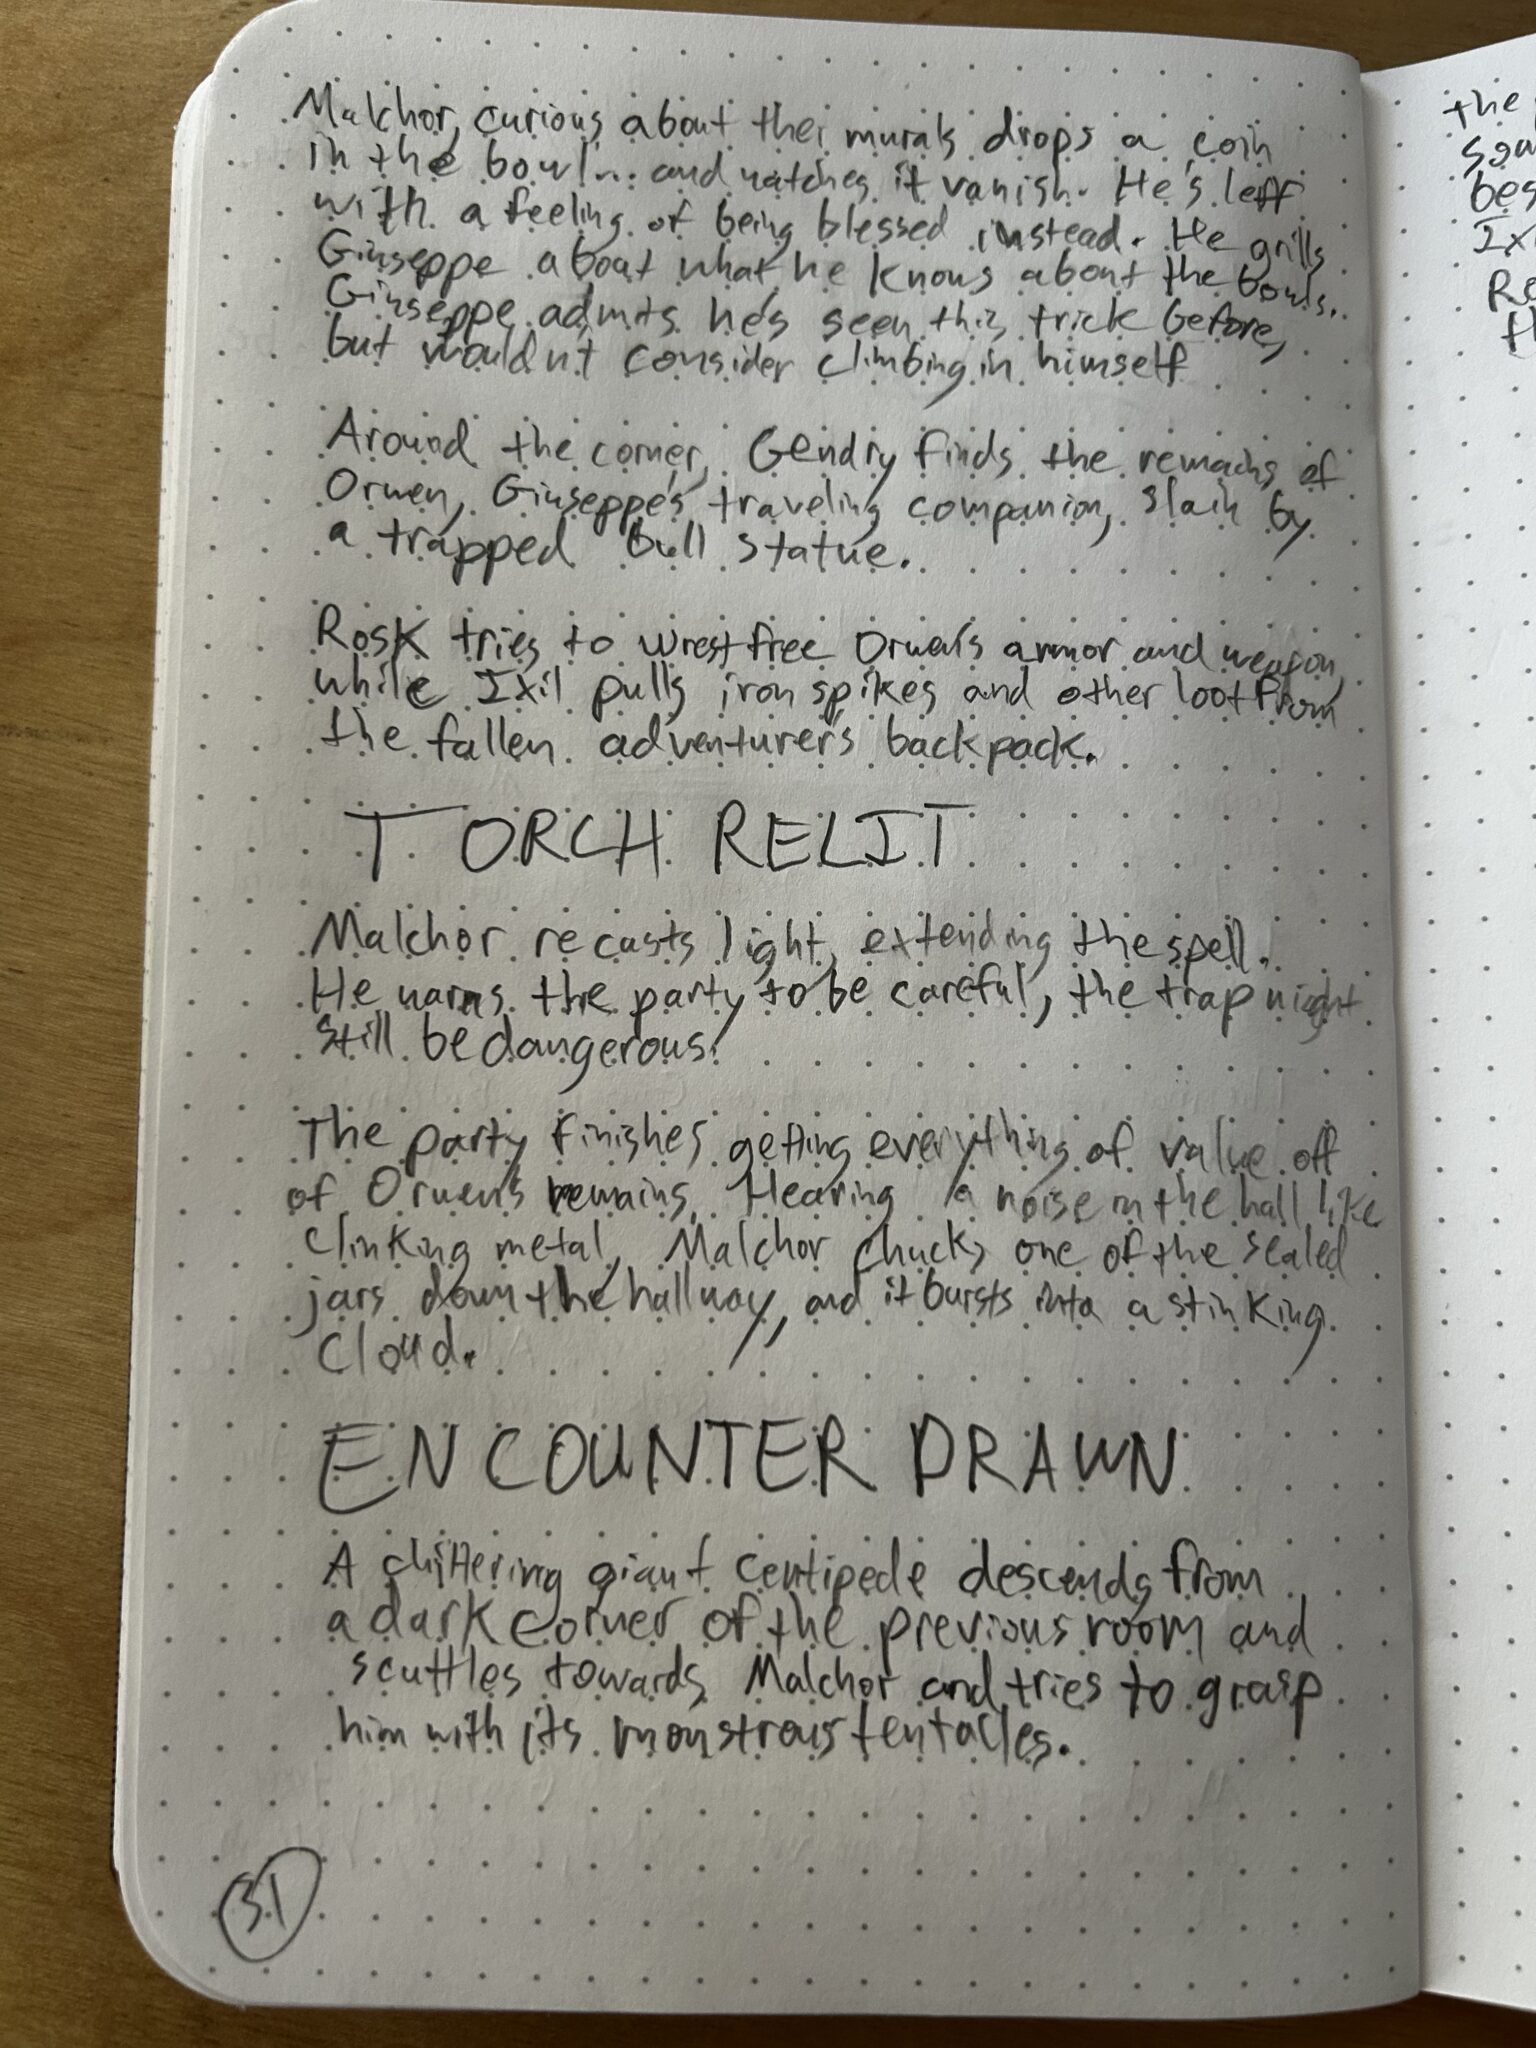 Malchor, curious about the murals drops a coin
in the bowl... and watches it vanish. He's left
with a feeling of being blessed instead. He grills
Giuseppe about what he knows about the bowls.
Giuseppe admits he's seen this trick before,
but wouldn't consider climbing in himself
Around the corner, Gendry finds the remains of
Orwen, Giuseppe's traveling companion, slain by
a trapped bull statue.
Rosk tries to wrest free Orwen's armor and weapon,
while Ixil pulls iron spikes and other loot from
the fallen adventurer's backpack.
TORCH RELIT
Malchor recasts light, extending the spell.
He warns the party to be careful, the trap might
still be dangerous.
The party finishes getting everything of value off
of Orwen's remains. Hearing a noise in the hall like
clinking metal, Malchor chucks one of the sealed
jars down the hallway, and it bursts into a stinking
cloud.
ENCOUNTER DRAWN
A chittering giant centipede descends from
a dark corner of the previous room and
scuttles towards Malchor and tries to grasp
him with its monstrous tentacles.
31
the
bes
Ixi
Re
th